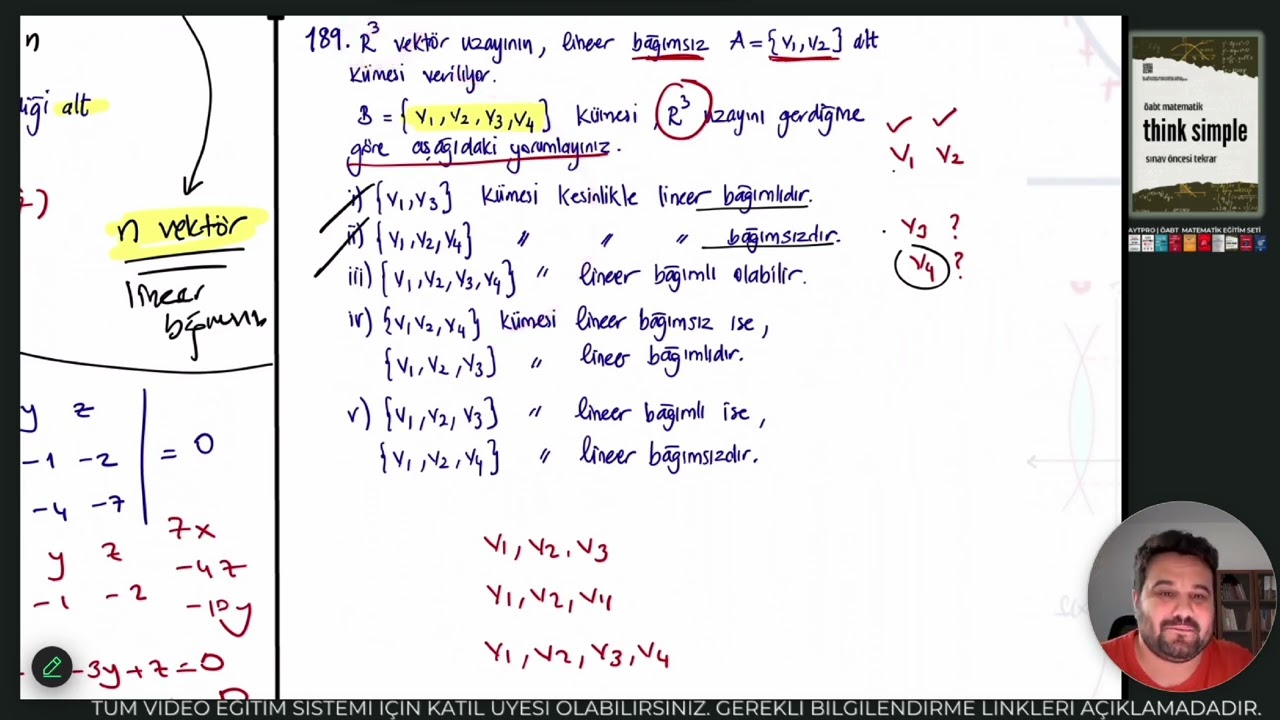 n
alt
n vektör
lineer
y z
-1 -2 = 0
-4 -7
7x
y z -4z
-1 -2 -10y
-3y+z=0
189. R³ vektör uzayının, lineer bağımsız A={v₁,v₂} alt
kümesi veriliyor.
B = {v₁, v₂, v₃, v₄} kümesi, R³ uzayını gerdiğine
göre aşağıdaki yorumlayınız.
i) {v₁,v₃} kümesi kesinlikle lineer bağımlıdır.
ii) {v₁,v₂,v₄} " " " bağımsızdır.
iii) {v₁,v₂,v₃,v₄} " lineer bağımlı olabilir.
iv) {v₁,v₂,v₄} kümesi lineer bağımsız ise,
{v₁,v₂,v₃} " lineer bağımlıdır.
v) {v₁,v₂,v₃} " lineer bağımlı ise,
{v₁,v₂,v₄} " lineer bağımsızdır.
v₁, v₂, v₃
v₁, v₂, v₄
v₁, v₂, v₃, v₄
v₁ v₂
v₃ ?
v₄ ?
öabt matematik
think simple
sınav öncesi tekrar
AYTPRO | ÖABT MATEMATİK EĞİTİM SETİ
TÜM VİDEO EĞİTİM SİSTEMİ İÇİN KATIL ÜYESİ OLABİLİRSİNİZ. GEREKLİ BİLGİLENDİRME LİNKLERİ AÇIKLAMADADIR.